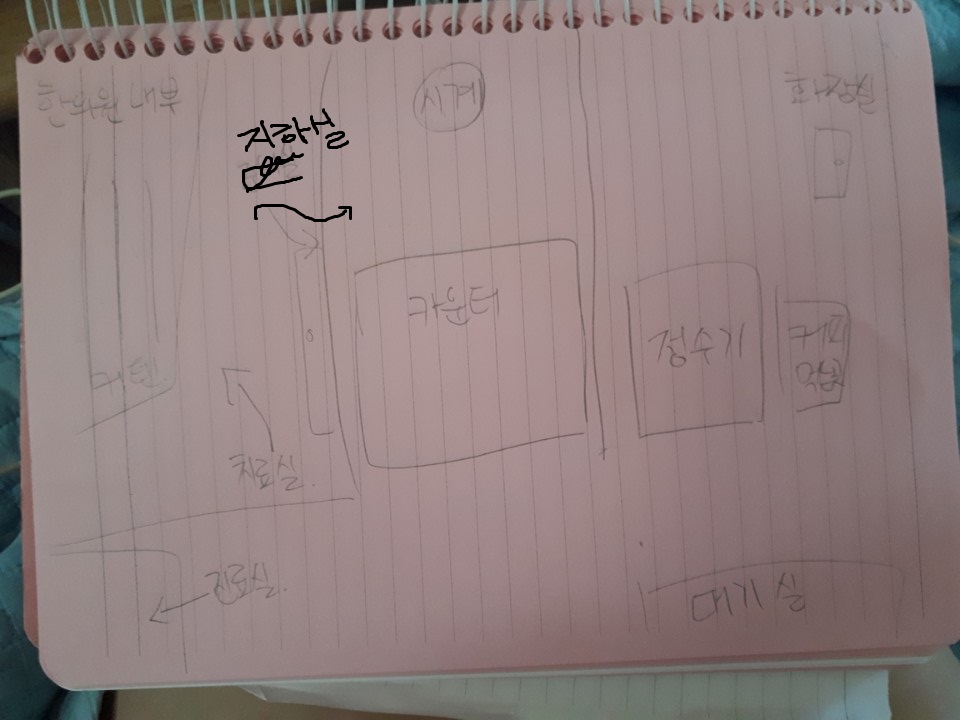 한의원 내부
시계
화장실
지하실
카운터
정수기
커피
커텐
치료실.
진료실.
대기실